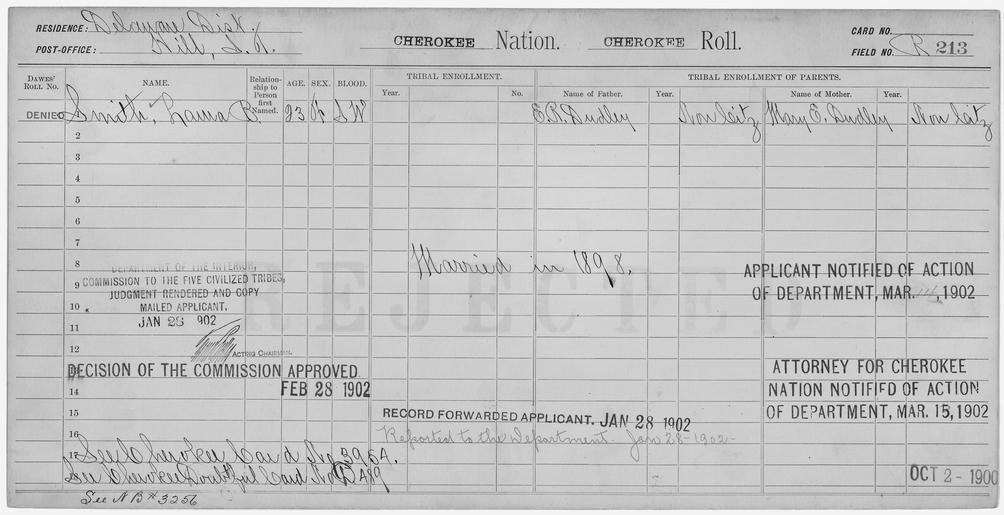 RESIDENCE: Delaware Dist.
POST-OFFICE: I.T.
CHEROKEE Nation. CHEROKEE Roll.
CARD NO.
FIELD NO. R 213
DAWES' ROLL NO. NAME. Relationship to Person first Named. AGE. SEX. BLOOD. TRIBAL ENROLLMENT. TRIBAL ENROLLMENT OF PARENTS.
Year. No. Name of Father. Year. Name of Mother. Year.
DENIED Smith, Laura B. 23 F I W E.P. Dudley Non Citz Mary E. Dudley Non Citz
2
3
4
5
6
7
8
9
10
11
12
14
15
16
17
Married in 1898.
REJECTED
DEPARTMENT OF THE INTERIOR,
COMMISSION TO THE FIVE CIVILIZED TRIBES,
JUDGMENT RENDERED AND COPY
MAILED APPLICANT.
JAN 28 902
ACTING CHAIRMAN.
APPLICANT NOTIFIED OF ACTION
OF DEPARTMENT, MAR. , 1902
DECISION OF THE COMMISSION APPROVED.
FEB 28 1902
ATTORNEY FOR CHEROKEE
NATION NOTIFIED OF ACTION
OF DEPARTMENT, MAR. 15, 1902
RECORD FORWARDED APPLICANT. JAN 28 1902
Reported to the Department. Jan 28-1902-
See Cherokee Card No. 3954.
See Cherokee Doubtful Card No. D 489
OCT 2 - 1900
See N B # 3256